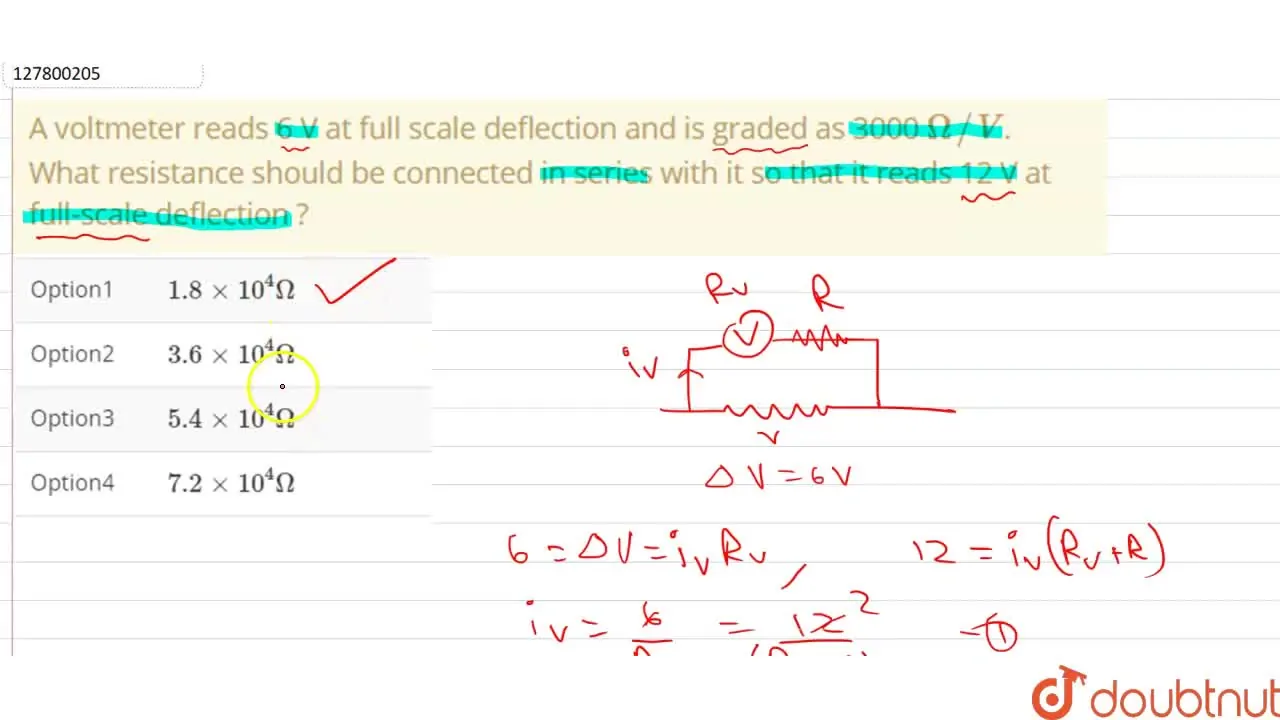 127800205
A voltmeter reads 6 V at full scale deflection and is graded as 3000 Ω / V.
What resistance should be connected in series with it so that it reads 12 V at
full-scale deflection ?
Option1 1.8 × 10⁴Ω
Option2 3.6 × 10⁴Ω
Option3 5.4 × 10⁴Ω
Option4 7.2 × 10⁴Ω
Rv R
V
iv
r
Δ V = 6 V
6 = Δ V = iv Rv , 12 = iv (Rv + R)
iv = 6 = 12 2 - ①
doubtnut